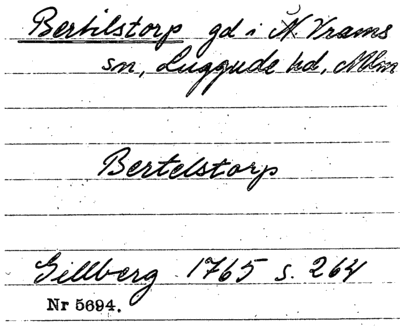 Bertilstorp gd i N. Vrams
sn, Luggude hd, Mlm
Bertelstorp
Gillberg 1765 s. 264
Nr 5694.